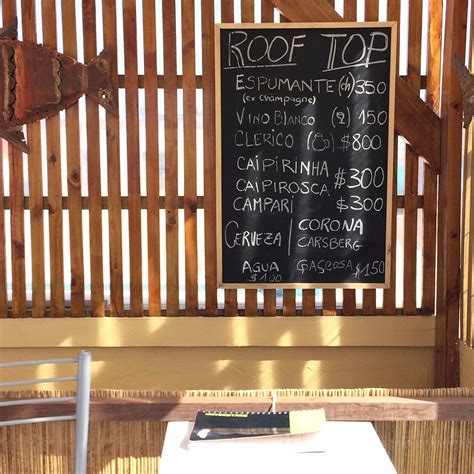 ROOF TOP
ESPUMANTE (ch) 350
(ex champagne)
VINO BLANCO 150
CLERICO $800
CAIPIRINHA
CAIPIROSCA $300
CAMPARI $300
CERVEZA CORONA
CARSBERG
AGUA GASEOSA $150
$100